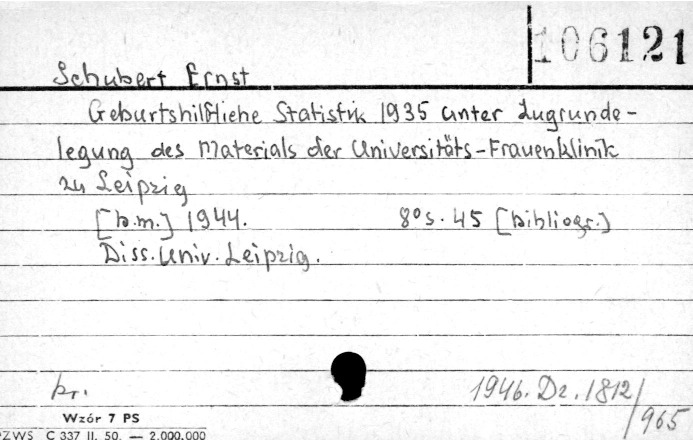 106121
Schubert Ernst
Geburtshilfliche Statistik 1935 unter Zugrunde-
legung des Materials der Universitäts-Frauenklinik
zu Leipzig
[b.m.] 1944. 8° s. 45 [bibliogr.]
Diss. Univ. Leipzig.
kr. 1946. Dz. 1812/965
Wzór 7 PS
PZWS C 337 II. 50. — 2.000.000